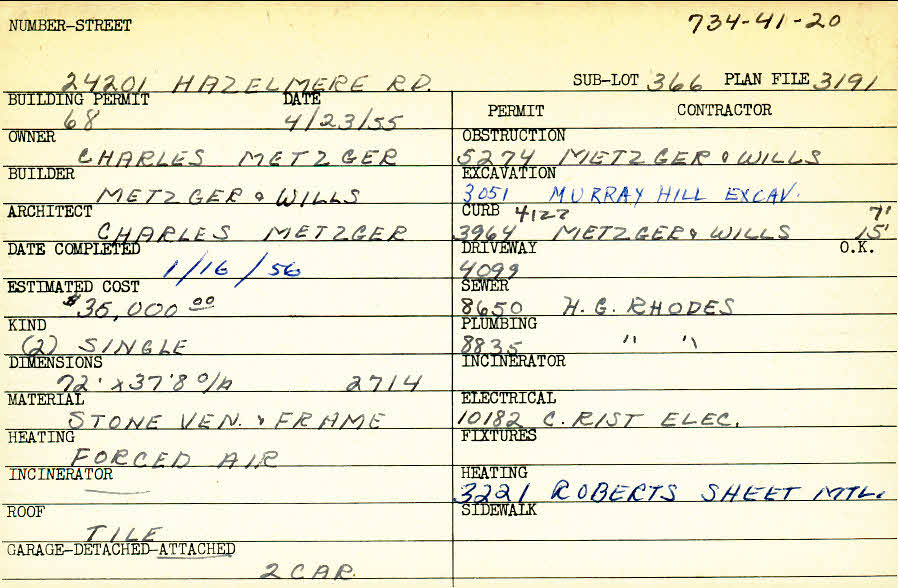 NUMBER-STREET
734-41-20
24201 HAZELMERE RD.
SUB-LOT 366 PLAN FILE 3191
BUILDING PERMIT DATE
68 4/23/55
OWNER
CHARLES METZGER
BUILDER
METZGER & WILLS
ARCHITECT
CHARLES METZGER
DATE COMPLETED
1/16/56
ESTIMATED COST
$35,000 00
KIND
(2) SINGLE
DIMENSIONS
72' x 37'8 O/A 2714
MATERIAL
STONE VEN. & FRAME
HEATING
FORCED AIR
INCINERATOR
ROOF
TILE
GARAGE-DETACHED-ATTACHED
2 CAR
PERMIT CONTRACTOR
OBSTRUCTION
5274 METZGER & WILLS
EXCAVATION
3051 MURRAY HILL EXCAV.
CURB 4122 7'
3964 METZGER & WILLS 15'
DRIVEWAY O.K.
4099
SEWER
8650 H.G. RHODES
PLUMBING
8835 " "
INCINERATOR
ELECTRICAL
10182 C. RIST ELEC.
FIXTURES
HEATING
3221 ROBERTS SHEET MTL.
SIDEWALK